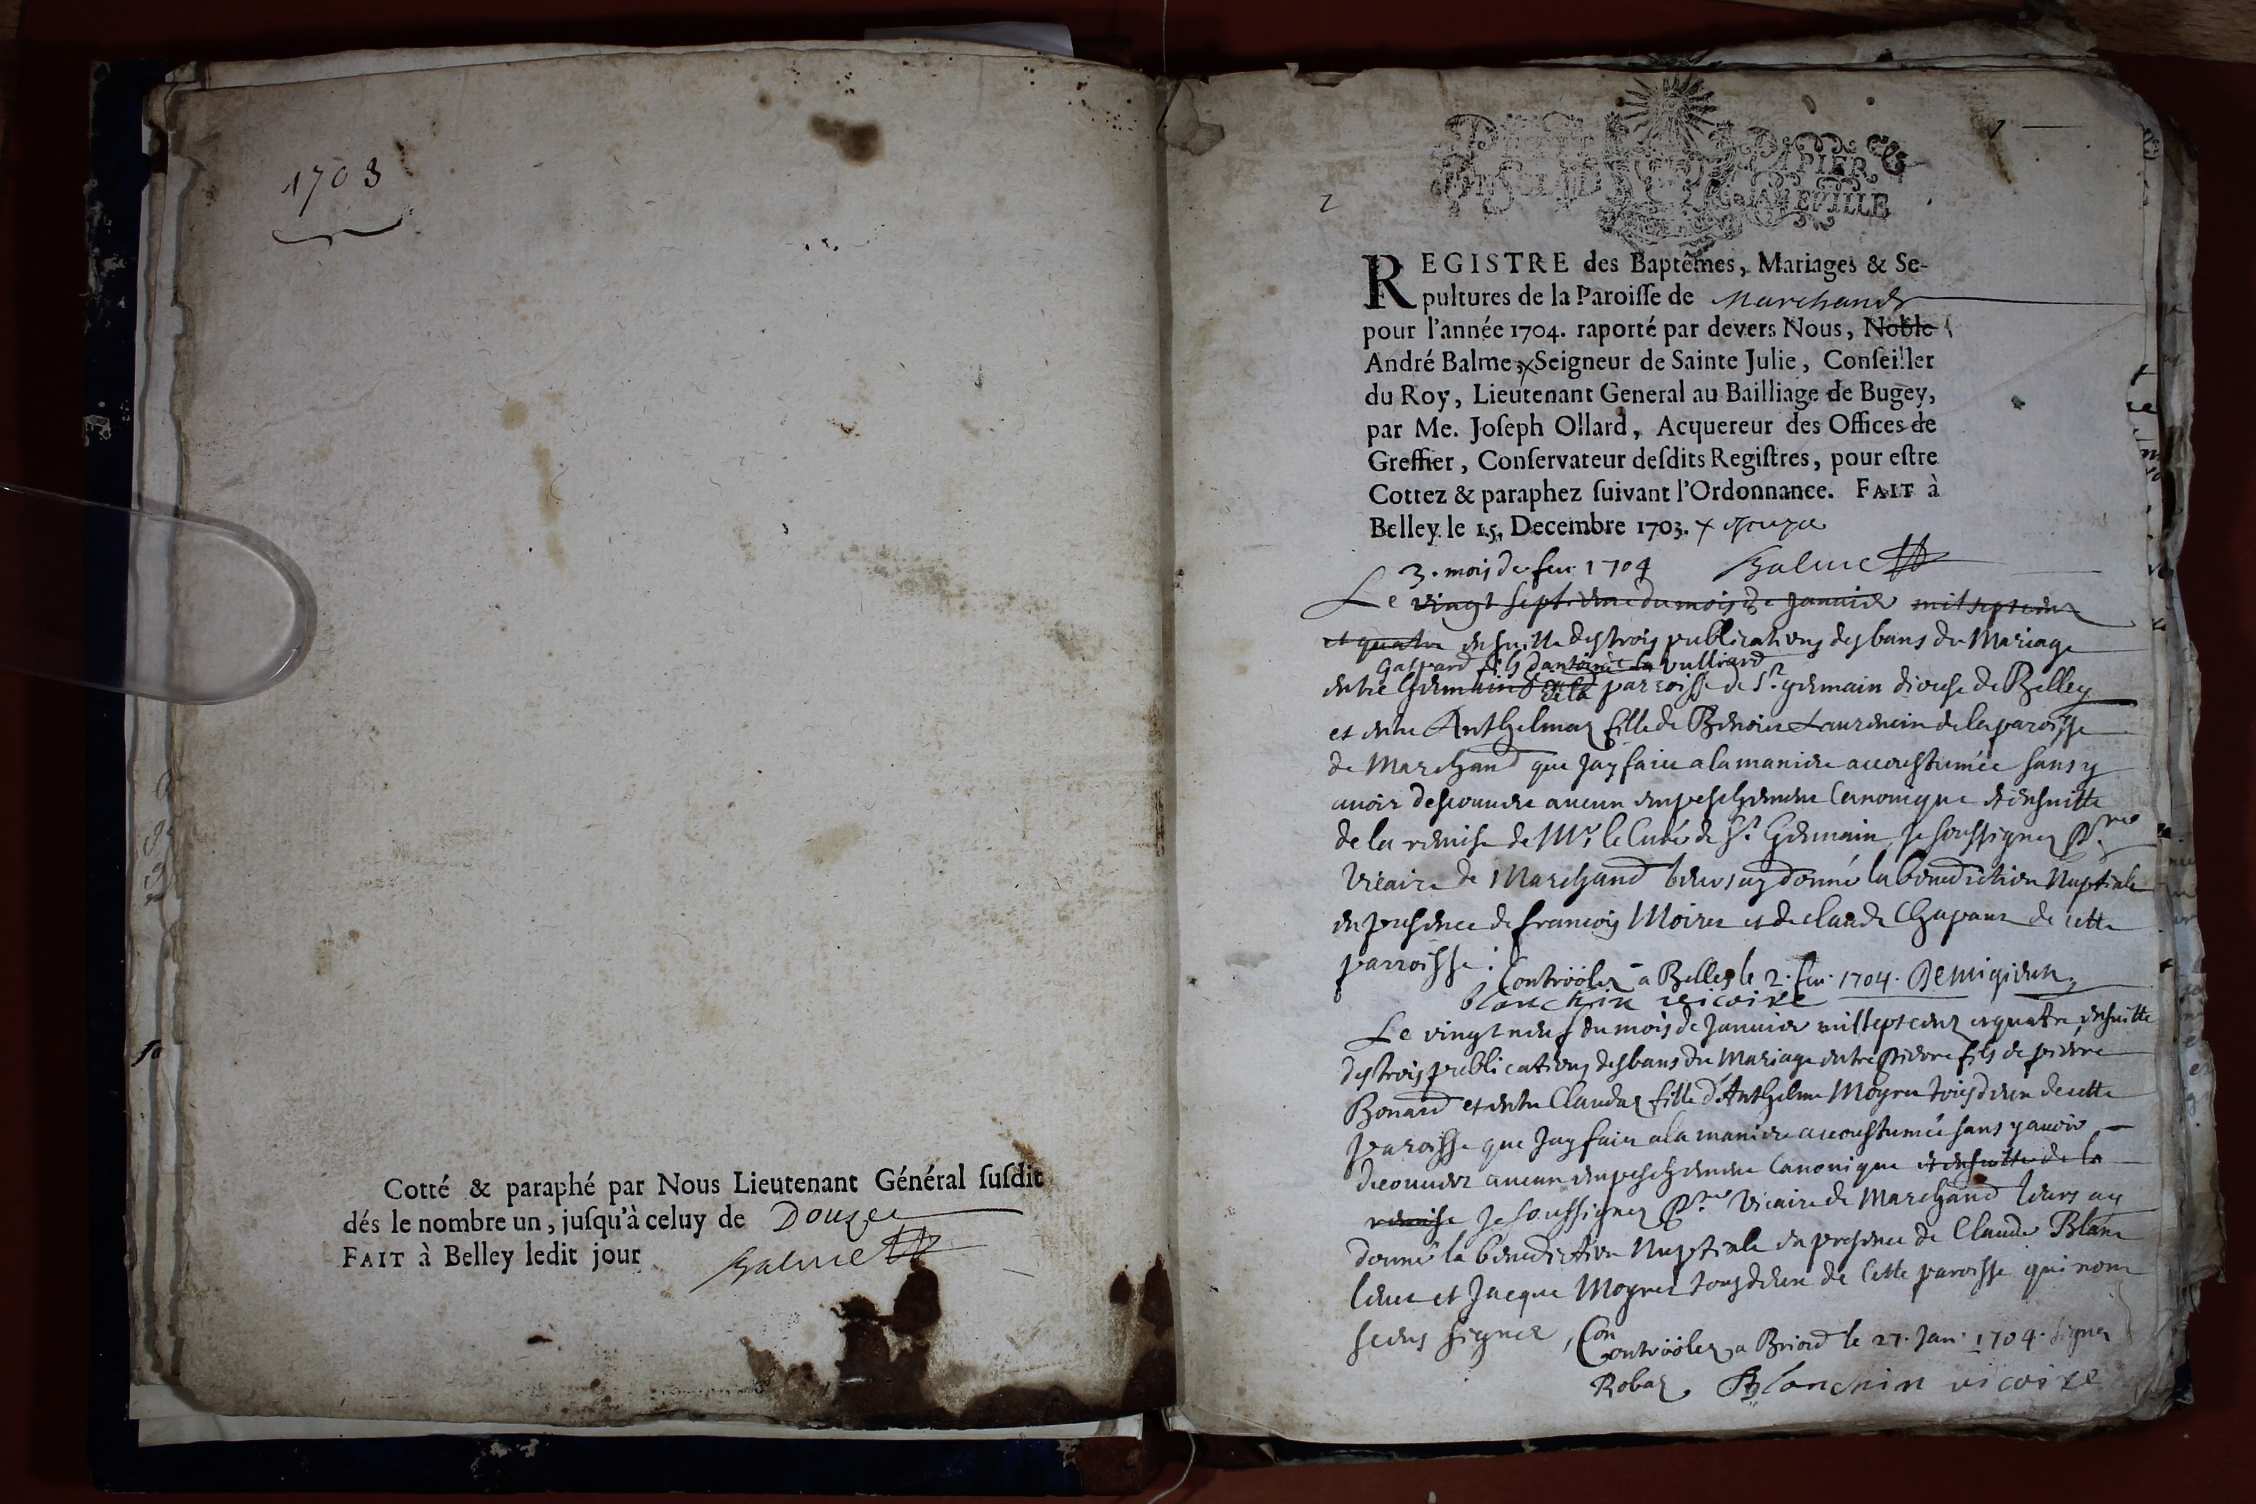 1703
Cotté & paraphé par Nous Lieutenant Général suſdit
dés le nombre un, juſqu'à celuy de Douze
FAIT à Belley ledit jour
Balme
1
2
PAPIER
REGISTRE des Baptêmes, Mariages & Se-
pultures de la Paroiſſe de Marchand
pour l'année 1704. raporté par devers Nous, Noble
André Balme, Seigneur de Sainte Julie, Conſeiller
du Roy, Lieutenant General au Bailliage de Bugey,
par Me. Joſeph Ollard, Acquereur des Offices de
Greffier, Conſervateur deſdits Regiſtres, pour eſtre
Cottez & paraphez ſuivant l'Ordonnance. FAIT à
Belley le 15, Decembre 1703.
3. mois de feu. 1704 Balme
Le vingt septieme du mois de Januier mil sept cens
et quatre ensuitte des trois publications des bans du Mariage
Gaspard fils d'antoine Vulliard
entre Germain de la parroisse de St. germain diouse de Belley
et entre Anthelmaz fille de Benoit Laurencin de la paroisse
de Marchand que Jay faict a la maniere accoustumée sans y
auoir descouuert aucun empeschement Canonique et ensuitte
de la remise de Mr. le Curé de St. Germain, Je soussignez Ptre
Vicaire de Marchand leurs ay donné la benediction Nuptiale
en presence de francois Moiret et de claude Chapant de cette
parroisse.
Contröölez a Belley le 2. feu. 1704. Demigieux
blanchin vicaire
Le vingt neuf du mois de Januier mil sept cent et quatre, ensuitte
des trois publications des bans du Mariage entre Pierre fils de pierre
Bonard et entre Claudaz fille d'Anthelme Moyret tous deux de cette
paroisse que Jay faict a la maniere accoustumée sans y auoir
decouuert aucun empeschement Canonique et ensuitte de la
remise Je soussignez Ptre Vicaire de Marchand leurs ay
donné la benediction Nuptiale en presence de Claude Blanc
et Jacque Moyret tous deux de Cette paroisse qui nont
sceus signer, Con
Contröölez a Briord le 27. Jan. 1704. signez
Robaz Blanchin vicaire